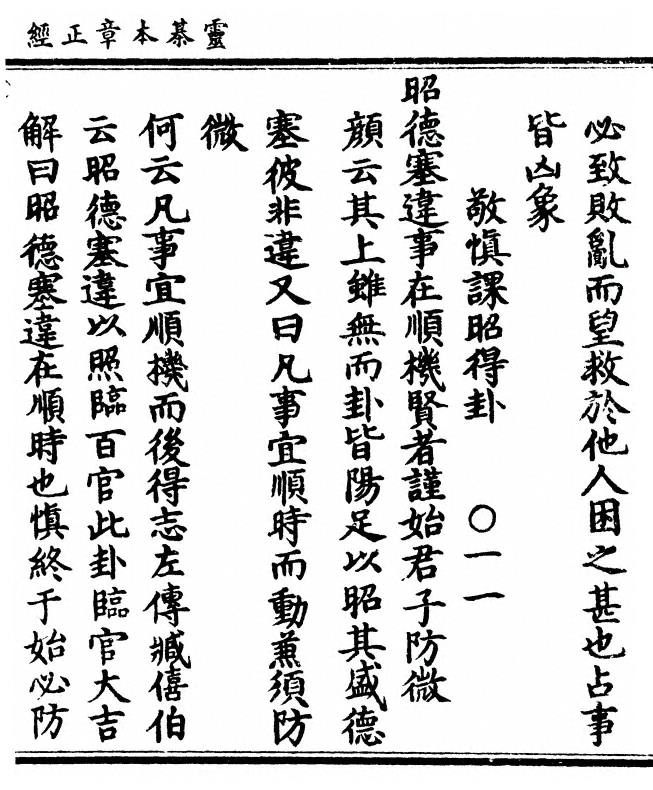 靈棊本章正經
必致敗亂而望救於他人困之甚也占事
皆凶象
敬慎課昭得卦 〇一一
昭德塞違事在順機賢者謹始君子防微
顔云其上雖無而卦皆陽足以昭其盛德
塞彼非違又曰凡事宜順時而動兼須防
微
何云凡事宜順機而後得志左傳臧僖伯
云昭德塞違以照臨百官此卦臨官大吉
解曰昭德塞違在順時也慎終于始必防